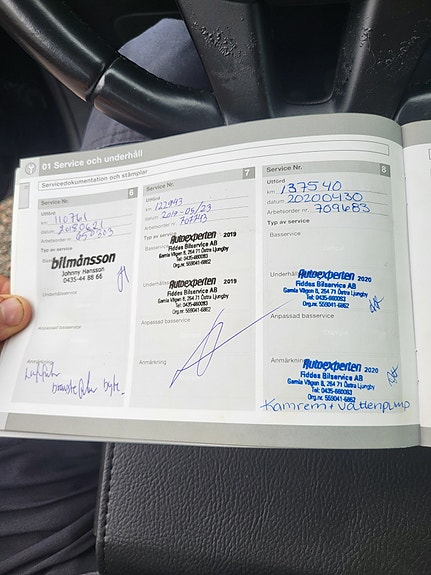 01 Service och underhåll
Servicedokumentation och stämplar
Service Nr.
6
Utförd
km 110761
datum
Arbetsorder nr
Typ av service
bilmånsson
Johnny Hansson
0435-44 88 66
Underhållsservice
Anpassad basservice
Anmärkning
Luftfilter
bränslefilter byte.
Service Nr.
7
Utförd
km 122943
datum 2019-05/23
Arbetsorder nr 707713
Typ av service
Basservice
Autoexperten 2019
Fiddes Bilservice AB
Gamla Vägen 8, 264 71 Östra Ljungby
Tel: 0435-660083
Org.nr. 559041-6862
Underhållsservice
Autoexperten 2019
Fiddes Bilservice AB
Gamla Vägen 8, 264 71 Östra Ljungby
Tel: 0435-660083
Org.nr. 559041-6862
Anpassad basservice
Anmärkning
Service Nr.
8
Utförd
km 137540
datum 20200430
Arbetsorder nr 709683
Typ av service
Basservice
Underhållsservice
Autoexperten 2020
Fiddes Bilservice AB
Gamla Vägen 8, 264 71 Östra Ljungby
Tel: 0435-660083
Org.nr. 559041-6862
Anpassad basservice
Anmärkning
Autoexperten 2020
Fiddes Bilservice AB
Gamla Vägen 8, 264 71 Östra Ljungby
Tel: 0435-660083
Org.nr. 559041-6862
Kamrem + Vattenpump